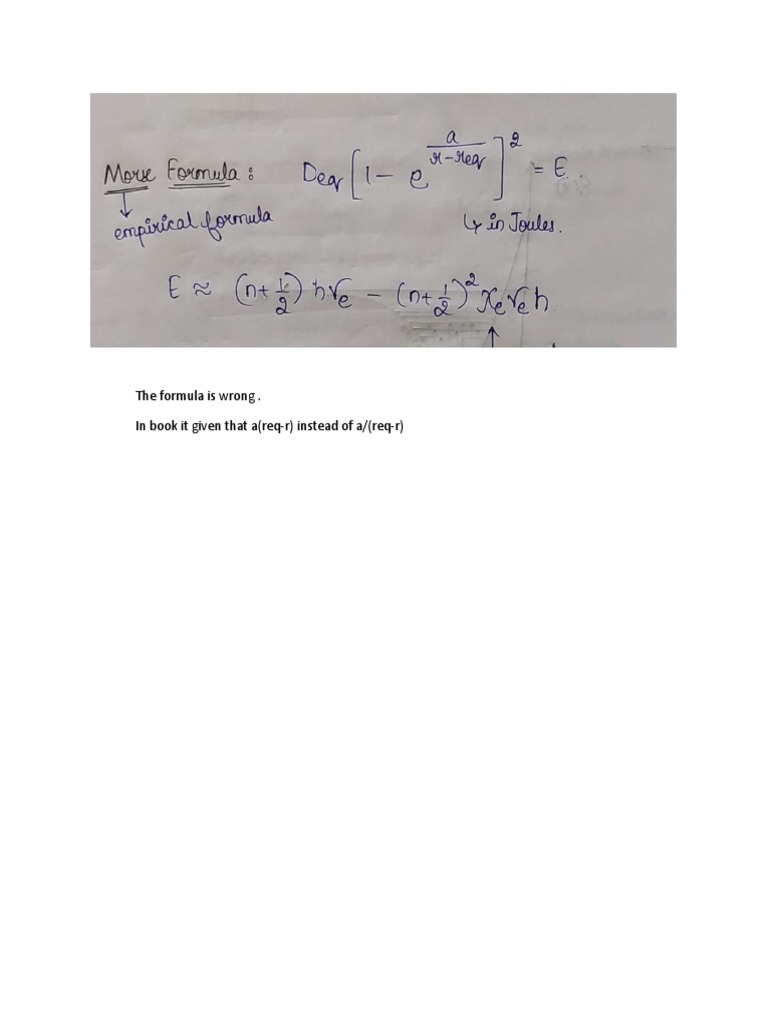 Morse Formula: Deq[1 - e^(a/(r-req))]^2 = E.
↳ in Joules.
empirical formula
E ≈ (n+1/2) hνe - (n+1/2)^2 xeνeh
The formula is wrong .
In book it given that a(req-r) instead of a/(req-r)